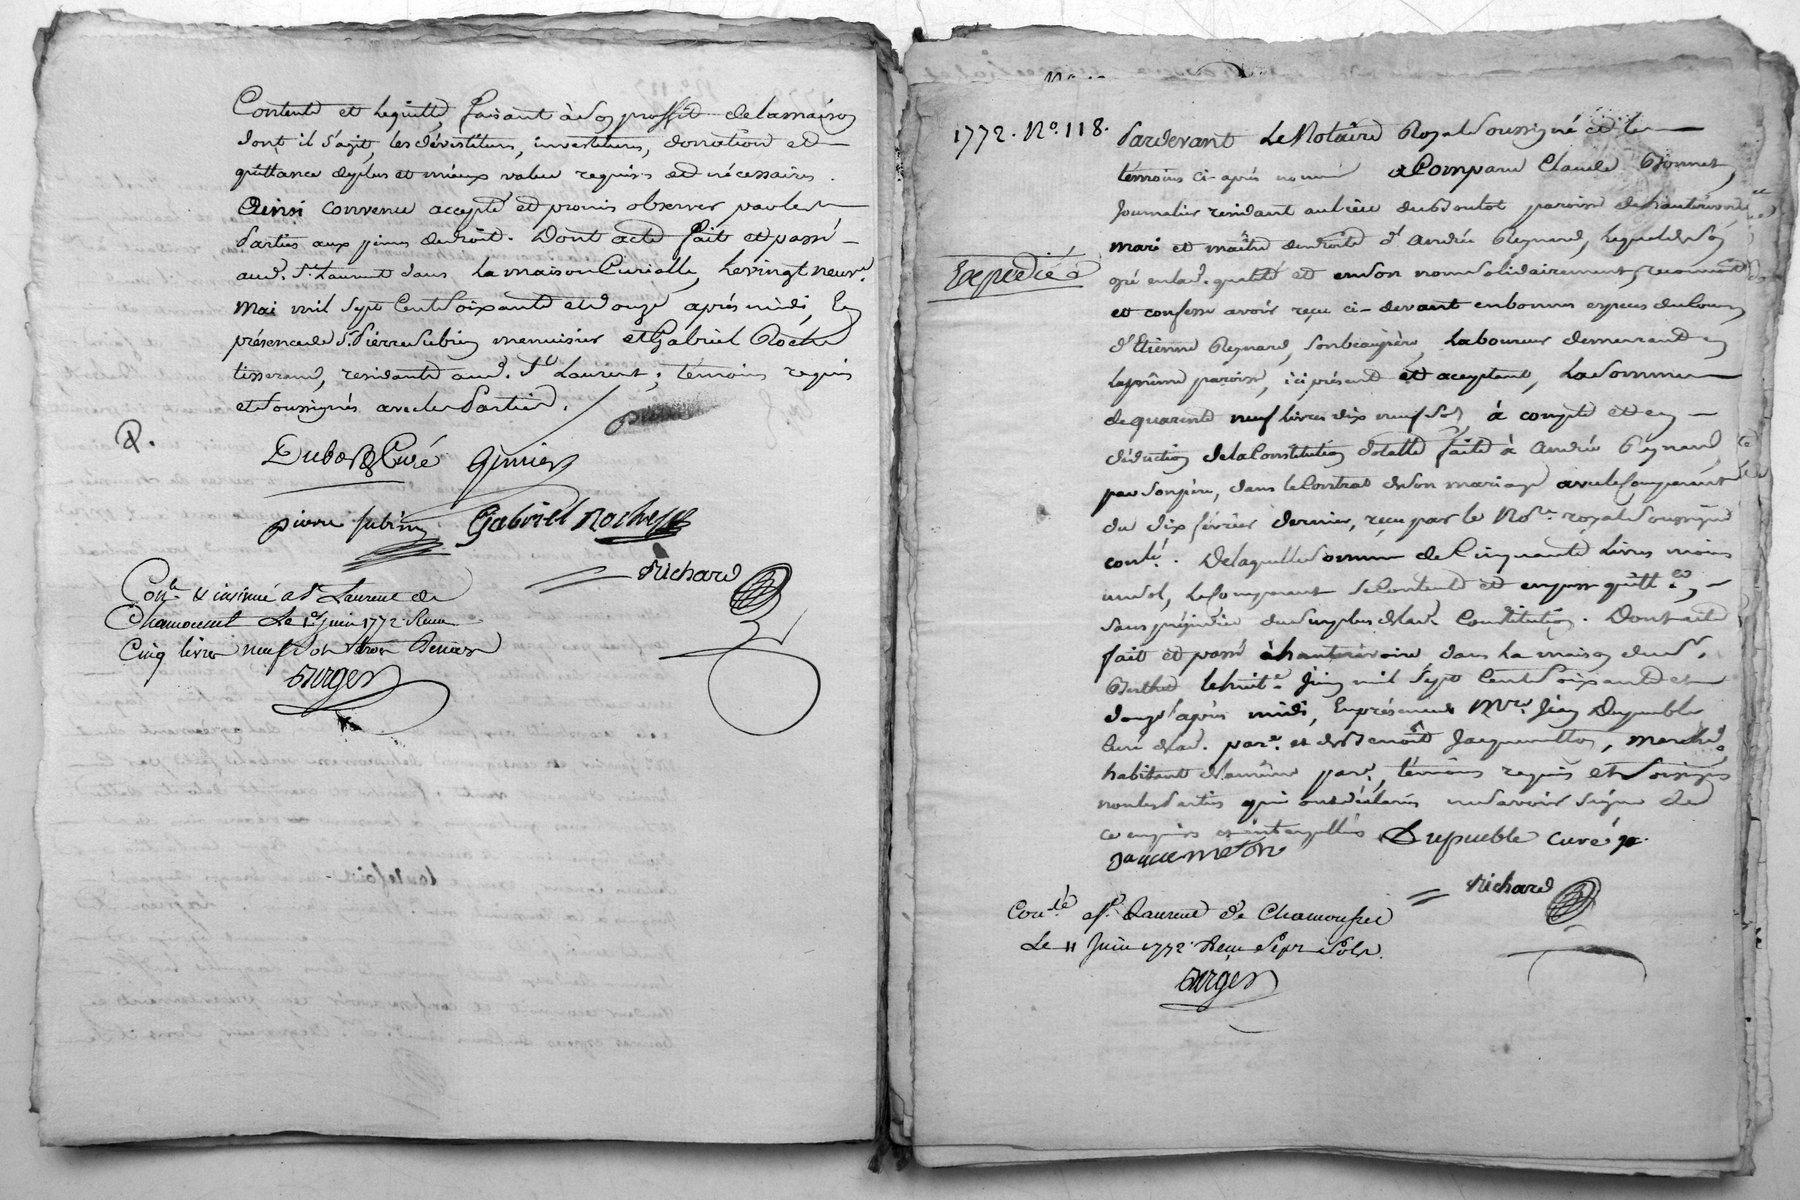 Contente et le quitte, faisant à son proffit de la maison
dont il s'agit, les dévestiture, investiture, donation et
quittance de plus et mieux value requises et nécessaires.
Ainsi convenu accepté et promis observer par les
Parties aux peines de droit. Dont acte fait et passé
aud. St. Laurent dans la maison Curialle, le vingt neuve.
Mai mil Sept Cent Soixante et douze après midi, En
présence de Sr. Pierre Subrin menuisier et Gabriel Roche
tisserand, residants aud. St. Laurent, témoins requis
et Soussignés avec les Parties.
Curé
pierre subrin Gabriel Roche
Richard
Con.le & insinué a St. Laurent de
Chamousset Le 1er juin 1772. Reçu
Cinq livres neuf Sols trois Deniers
1772. No. 118.
Expedié
Pardevant Le Notaire Royal Soussigné et les
témoins ci-après nommés a Comparu Claude Bonnet,
Journalier residant au lieu du Boulot paroisse de hauterivoire
mari et maître des droits d'Andrée Reynard, lequel de son
gré en lad. qualité et en son nom solidairement, reconnoit
et confesse avoir reçu ci-devant en bonnes espèces de Cours
d'Etienne Reynard, son beaupère, Laboureur demeurant en
la même paroisse, ici présent et acceptant, La Somme
de quarante neuf livres dix neuf Sols, à compte et en
déduction de la Constitution dotalle faite à Andrée Reynard,
par son père, dans le Contrat de Son mariage avec le Comparant
du dix février dernier, reçu par le No.re royal Soussigné
conlé. De laquelle Somme de Cinquante Livres moins
un Sol, Le Comparant Se Contente et en passe quitt.ce,
sans préjudice du Surplus de lad. Constitution. Dont acte
fait et passé à hauterivoire dans la maison du Sr.
Berthet le huit.e Juin mil Sept Cent Soixante et
douze après midi, En présence de Mre. Jean Dupueble
Curé de lad. par.e et de Sr Benoît Jacquemetton, March.d
habitant de la même par.e, témoins requis et Soussignés
non les Parties qui ont déclarés ne savoir Signer de
ce enquises et interpellées Dupueble curé
Jacquemeton
Richard
Con.lé a St. Laurent de Chamousset
Le 11 Juin 1772. Reçu Sept Sols.